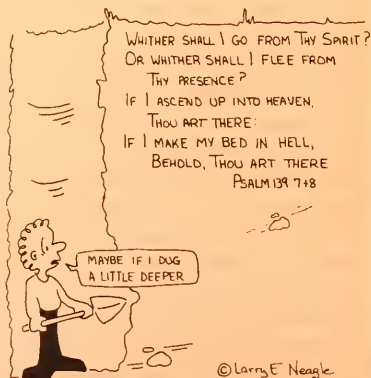 WHITHER SHALL I GO FROM THY SPIRIT?
OR WHITHER SHALL I FLEE FROM
THY PRESENCE?
IF I ASCEND UP INTO HEAVEN,
THOU ART THERE:
IF I MAKE MY BED IN HELL,
BEHOLD, THOU ART THERE
PSALM 139 7+8
MAYBE IF I DUG
A LITTLE DEEPER
© Larry E Neagle